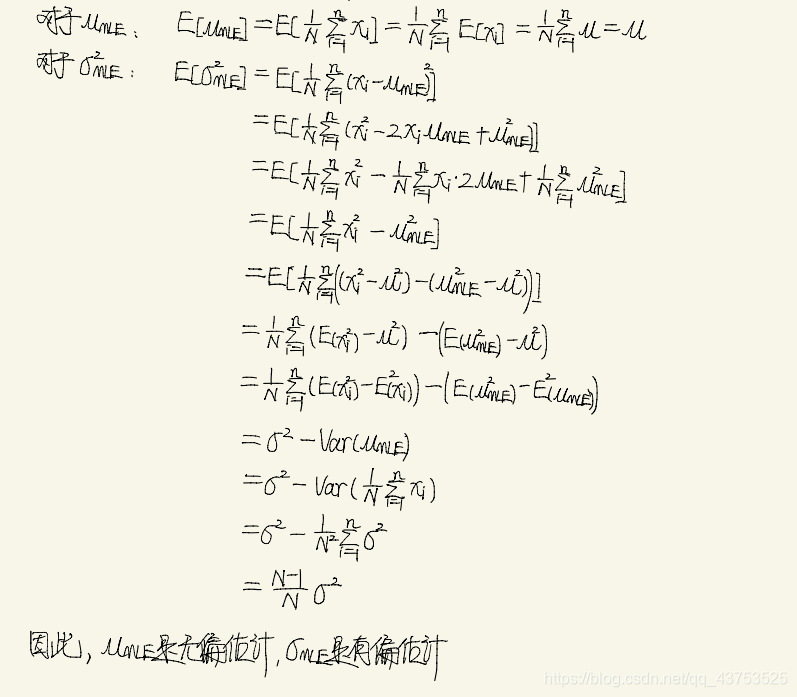 对于 μ_MLE: E[μ_MLE] = E[1/N ∑_{i=1}^{n} x_i] = 1/N ∑_{i=1}^{n} E[x_i] = 1/N ∑_{i=1}^{n} μ = μ
对于 σ²_MLE: E[σ²_MLE] = E[1/N ∑_{i=1}^{n} (x_i - μ_MLE)²]
= E[1/N ∑_{i=1}^{n} (x_i² - 2x_i μ_MLE + μ²_MLE)]
= E[1/N ∑_{i=1}^{n} x_i² - 1/N ∑_{i=1}^{n} x_i · 2μ_MLE + 1/N ∑_{i=1}^{n} μ²_MLE]
= E[1/N ∑_{i=1}^{n} x_i² - μ²_MLE]
= E[1/N ∑_{i=1}^{n} ((x_i² - μ²) - (μ²_MLE - μ²))]
= 1/N ∑_{i=1}^{n} (E(x_i²) - μ²) - (E(μ²_MLE) - μ²)
= 1/N ∑_{i=1}^{n} (E(x_i²) - E²(x_i)) - (E(μ²_MLE) - E²(μ_MLE))
= σ² - Var(μ_MLE)
= σ² - Var(1/N ∑_{i=1}^{n} x_i)
= σ² - 1/N² ∑_{i=1}^{n} σ²
= N-1/N σ²
因此, μ_MLE是无偏估计, σ_MLE是有偏估计
https://blog.csdn.net/qq_43753525